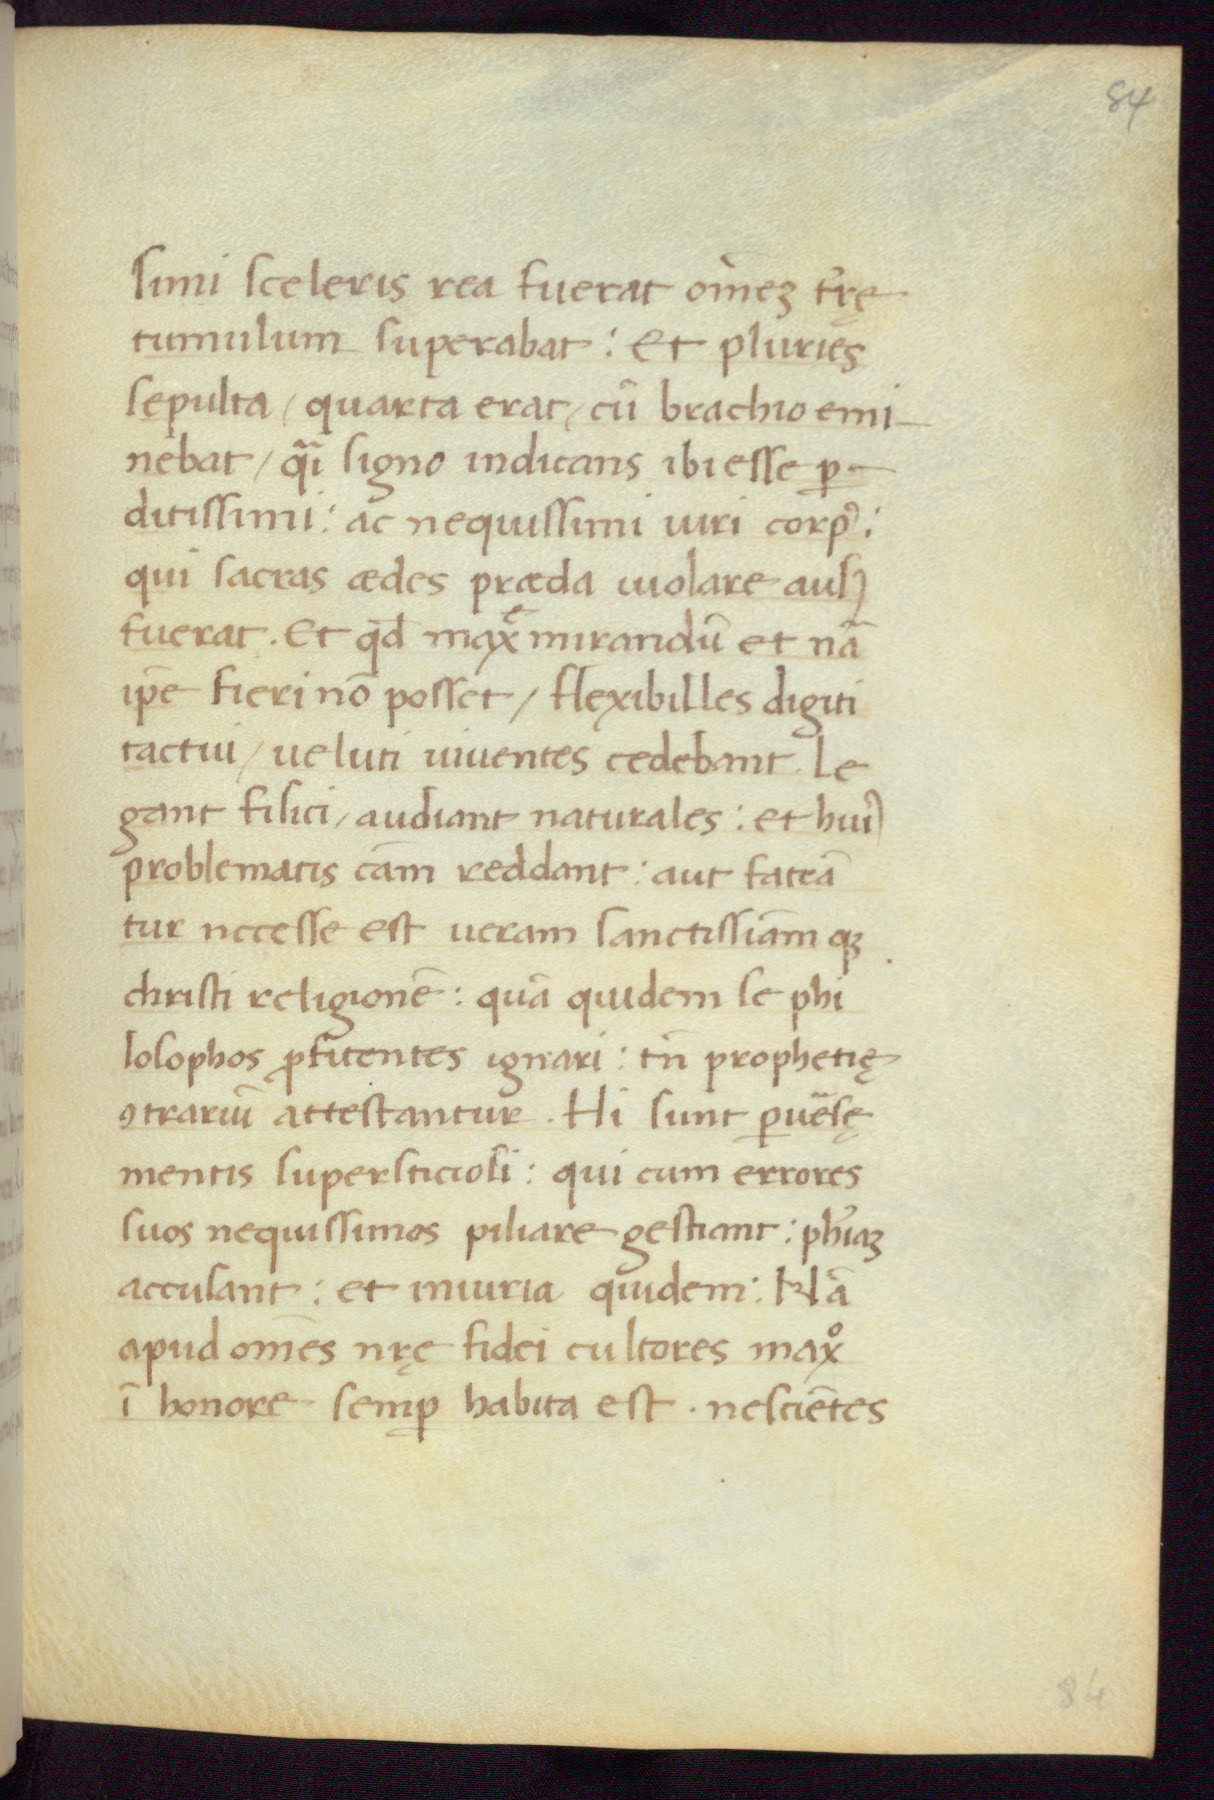 84
simi sceleris rea fuerat om̄ez tr̄ę
tumulum superabat : Et pluries
sepulta / quarta erat / cū brachio emi-
nebat / q̄i signo indicans ibi esse ꝑ-
ditissimi : ac nequissimi uiri corpꝰ :
qui sacras ædes præda uiolare ausꝰ
fuerat . Et qd̄ maxͤ mirandū et nā
ip̄e fieri nō posset / flexibilles digiti
tactui / ueluti uiuentes cedebant . Le
gant filici / audiant naturales : et huiꝰ
problematis cām reddant : aut fateā
tur necesse est ueram sanctissiām qꝫ
christi religionē : quā quidem se phi
losophos ꝓfitentes ignari : tn̄ prophetię
ꝯtrariū attestantur . Hi sunt ꝑuēsę
mentis supersticiosi : qui cum errores
suos nequissimos piliare gestiant : ph̄iaꝫ
accusant : et iniuria quidem : Nā
apud om̄es nr̄ę fidei cultores maxᵒ
ī honore semꝑ habita est . nesciētes
84